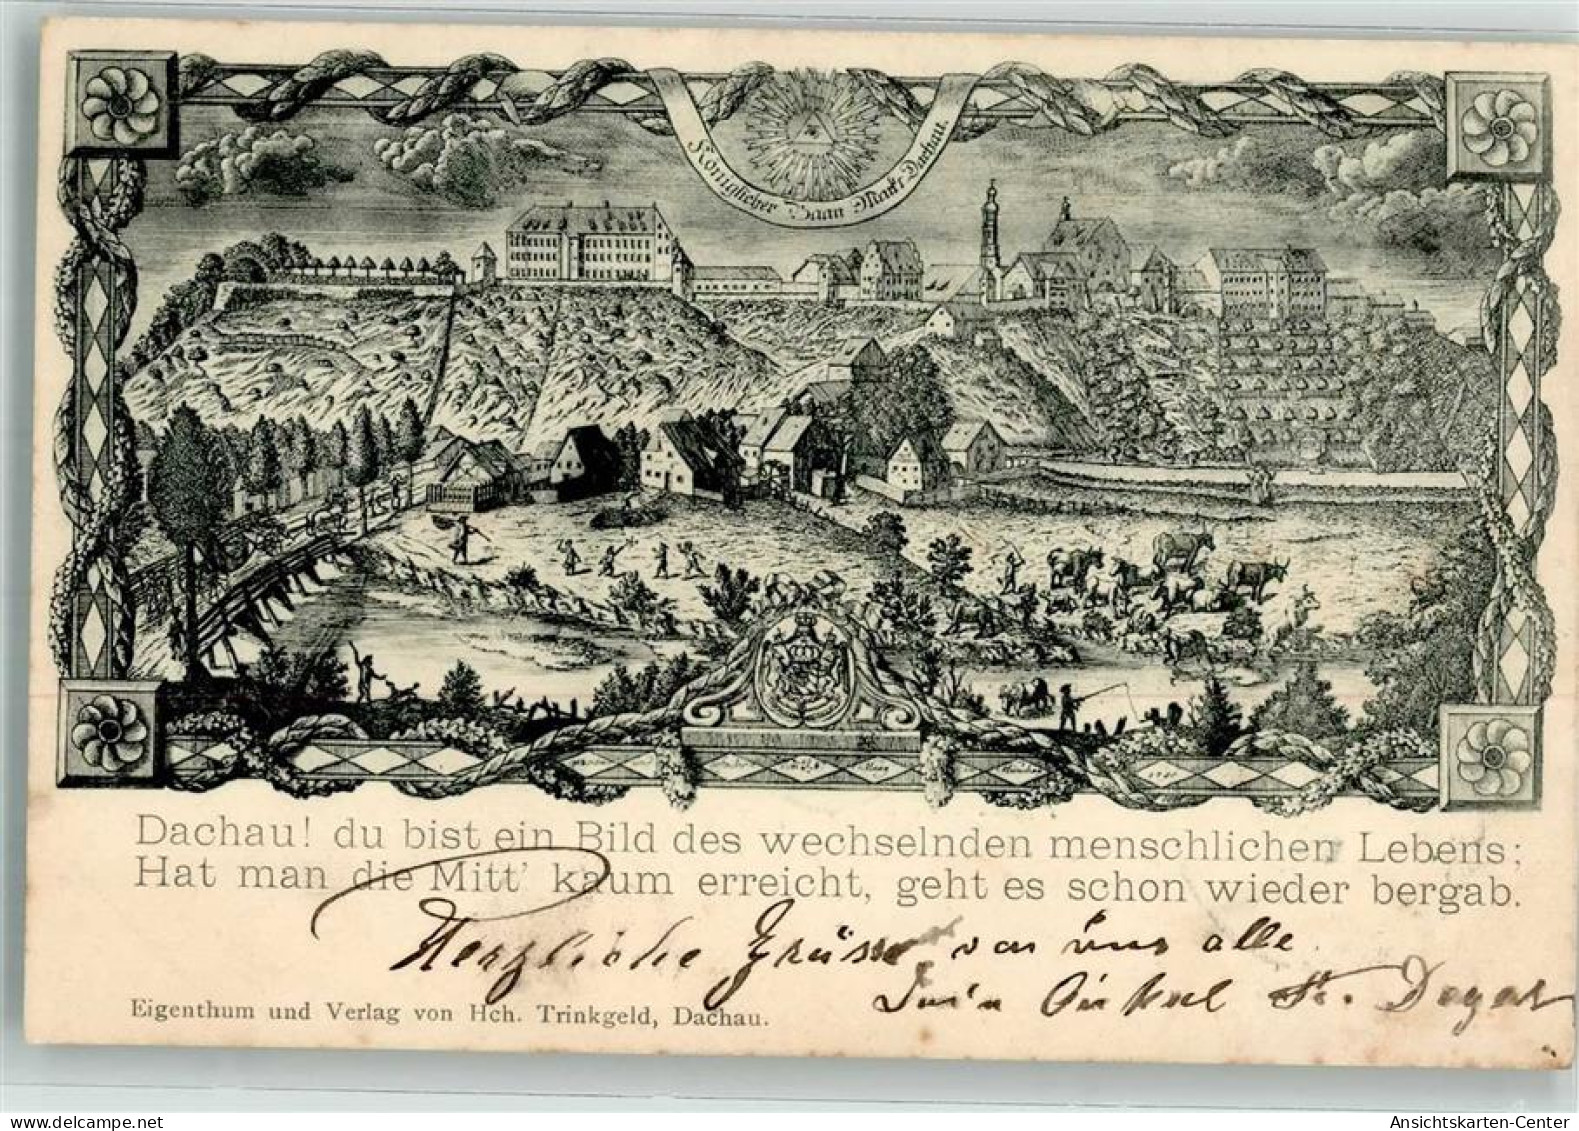 Königlicher Baan Markt Dachau.
Dachau! du bist ein Bild des wechselnden menschlichen Lebens;
Hat man die Mitt' kaum erreicht, geht es schon wieder bergab.
Herzliche Grüsse von uns alle
Eigenthum und Verlag von Hch. Trinkgeld, Dachau.
delcampe.net
Ansichtskarten-Center